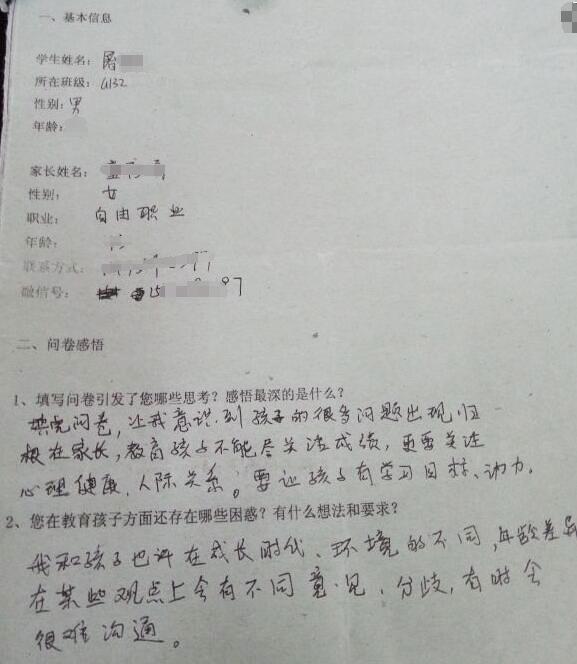 一、基本信息
学生姓名：屠
所在班级：G132
性别：男
年龄：
家长姓名：
性别： 女
职业： 自由职业
年龄：
联系方式：
微信号： 15 97
二、问卷感悟
1、填写问卷引发了您哪些思考？感悟最深的是什么？
填完问卷，让我意识到孩子的很多问题出现归
根在家长，教育孩子不能尽关注成绩，更要关注
心理健康，人际关系。要让孩子有学习目标、动力。
2、您在教育孩子方面还存在哪些困惑？有什么想法和要求？
我和孩子也许在成长时代、环境的不同，年龄差异
在某些观点上会有不同意见、分歧，有时会
很难沟通。